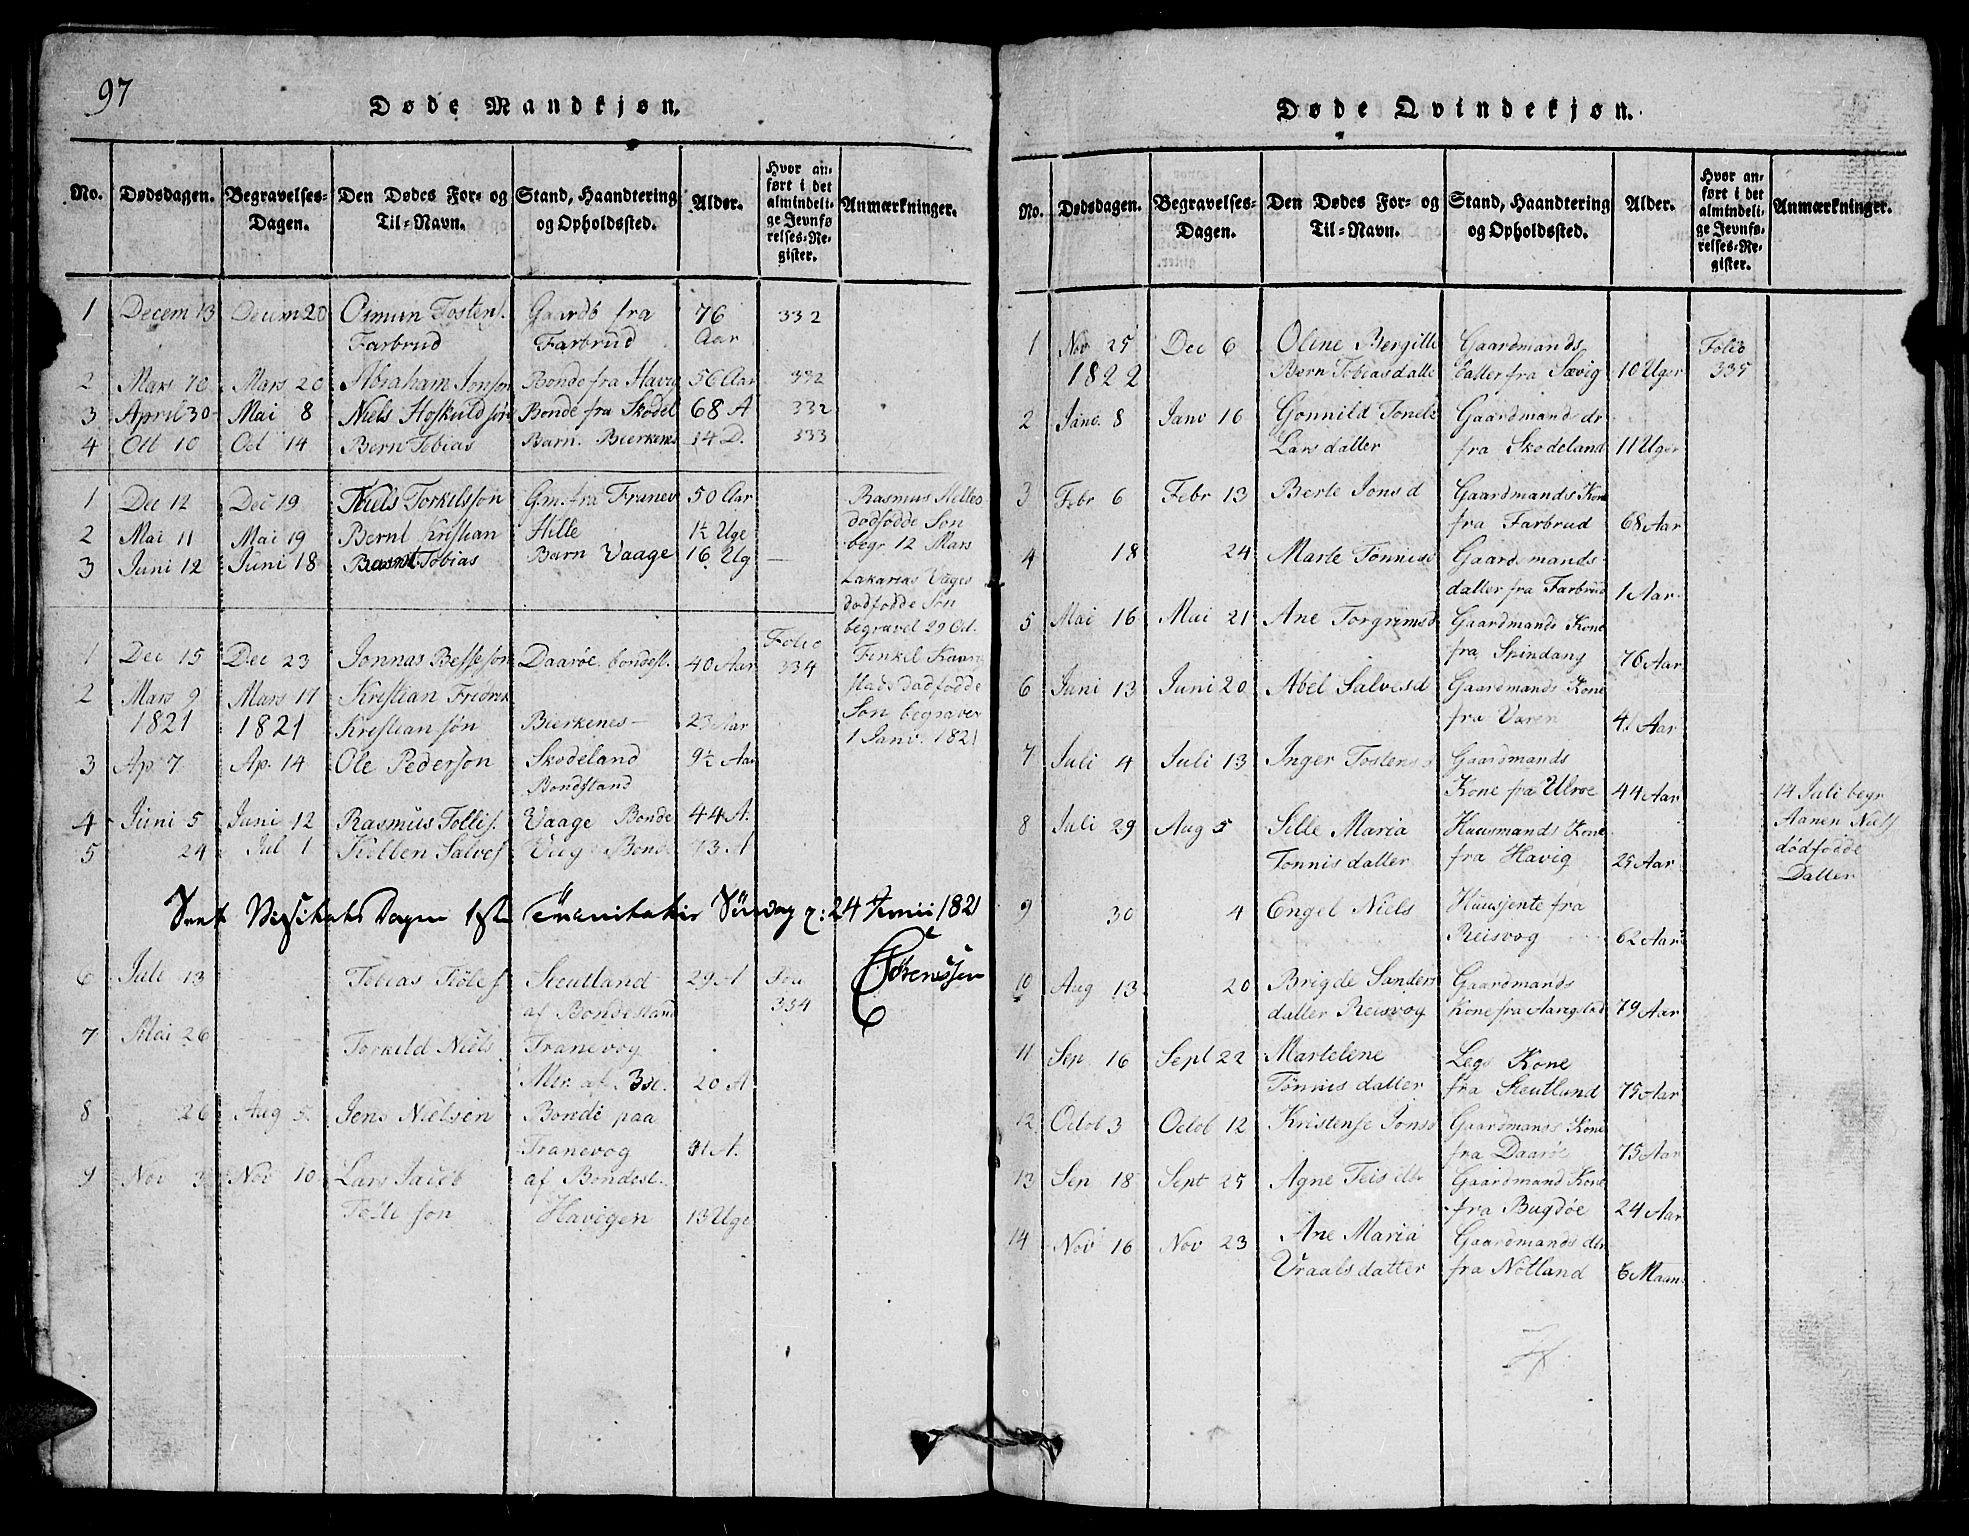 97
Døde Mandkjøn.
No. Dødsdagen. Begravelses-Dagen. Den Dødes For- og Til-Navn. Stand, Haandtering og Opholdssted. Alder. Hvor anført i det almindelige Jevnførelses-Register. Anmærkninger.
1 Decem 13 Decem 20 Osmun Tostens. Gaardb fra 76 332
Farbrud Farbrud Aar
2 Mars 10 Mars 20 Abraham Jonson Bonde fra Havig 56 Aar 332
3 April 30 Mai 8 Niels Hofkuldsøn Bonde fra Skodel 68 A 332
4 Oct 10 Oct 14 Bern Tobias Barn. Bierkenes 14 D. 333
1 Dec 12 Dec 19 Niels Torkilssøn Gm. fra Tranev 50 Aar Rasmus Hilles
dødfødde Søn
2 Mai 11 Mai 19 Bernt Kristian Hille 1½ Uge begr 12 Mars
3 Juni 12 Juni 18 Tobias Barn Vaage 16 Ug —
Zakarias Vages
dødfødde Søn
begravet 29 Oct.
1 Dec 15 Dec 23 Jonnas Bessesøn Daarøe bondest. 40 Aar Folio 334
2 Mars 9 Mars 17 Kristian Fridrik
stads dødfødde
1821 1821 Kristian søn Bierkenes 23 Aar Søn begraven
1 Janv. 1821
3 Ap. 7 Ap. 14 Ole Pedersøn Skodeland 9½ Aar
Bondstand
4 Juni 5 Juni 12 Rasmus Tollis. Vaage Bonde 44 A.
5 24 Jul 1 Salves Bonde 73 A
24 Junii 1821
6 Juli 13 Tobias Steutland 29 A Foli 334
af Bondestand
7 Mai 26 Torkild Niels Tranevog
af Bst. 20 A
8 26 Aug 5. Jens Nielsen Bonde paa
Tranevog A.
9 Nov 3 Nov 10 Lars Jacob af Bondest.
søn Havigen 13 Uge
Døde Qvindekjøn.
No. Dødsdagen. Begravelses-Dagen. Den Dødes For- og Til-Navn. Stand, Haandtering og Opholdssted. Alder. Hvor anført i det almindelige Jevnførelses-Register. Anmærkninger.
1 Nov 25 Dec 6 Oline Bergitte Gaardmands Folio
1822 Bern Tobiasdatte datter fra Sævig 10 Uger 335
2 Janv. 8 Janv 16 Gonnild Tonete Gaardmands dr
Lars datter fra Skodeland 11 Uger
3 Febr 6 Febr 13 Berte Jons d Gaardmands Kone
fra Farbrud 68 Aar
4 18 24 Marte Tønnisd Gaardsmands
datter fra Farbrud 1 Aar
5 Mai 16 Mai 21 Ane Torgrimsd Gaardmands Kone
fra Spindang 76 Aar
6 Juni 13 Juni 20 Abel Salvesd Gaardmands Kone
fra Varen Aar
7 Juli 4 Juli 13 Inger Tostens Gaardmands
Kone fra Ulvøe 44 Aar 14 Juli begr
8 Juli 29 Aug 5 Sille Maria Huusmands Kone Aanen Niels
dødfødde
Tonnis datter fra Havig 25 Aar Datter
9 30 4 Engel Niels Huusjente fra
Reisvog 62 Aar
10 Aug 13 20 Brigde Sanders Gaardmands
datter Reisvog Kone fra Aaregstad 79 Aar
11 Sep 16 Sept 22 Martelene Legs Kone
Tønnis datter fra Steutland 75 Aar
12 Octob 3 Octob 12 Kristense Jonsd Gaardmands Kone
fra Daarøe 75 Aar
13 Sep 18 Sept 25 Agne Teis dtr Gaardmand Kone
fra Bugdøe 24 Aar
14 Nov 16 Nov 23 Ane Maria Gaardmands dtr
Vraals datter fra Nøtland 6 Maan